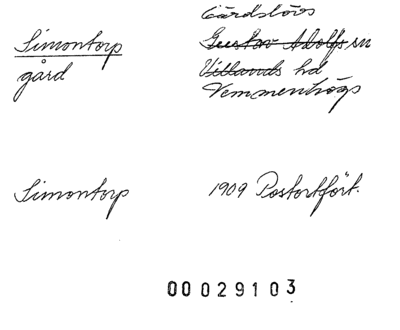 Gärdslövs
Simontorp Gustav Adolfs sn
gård Villands hd
Vemmenhögs
Simontorp 1909 Postortfört.
00029103